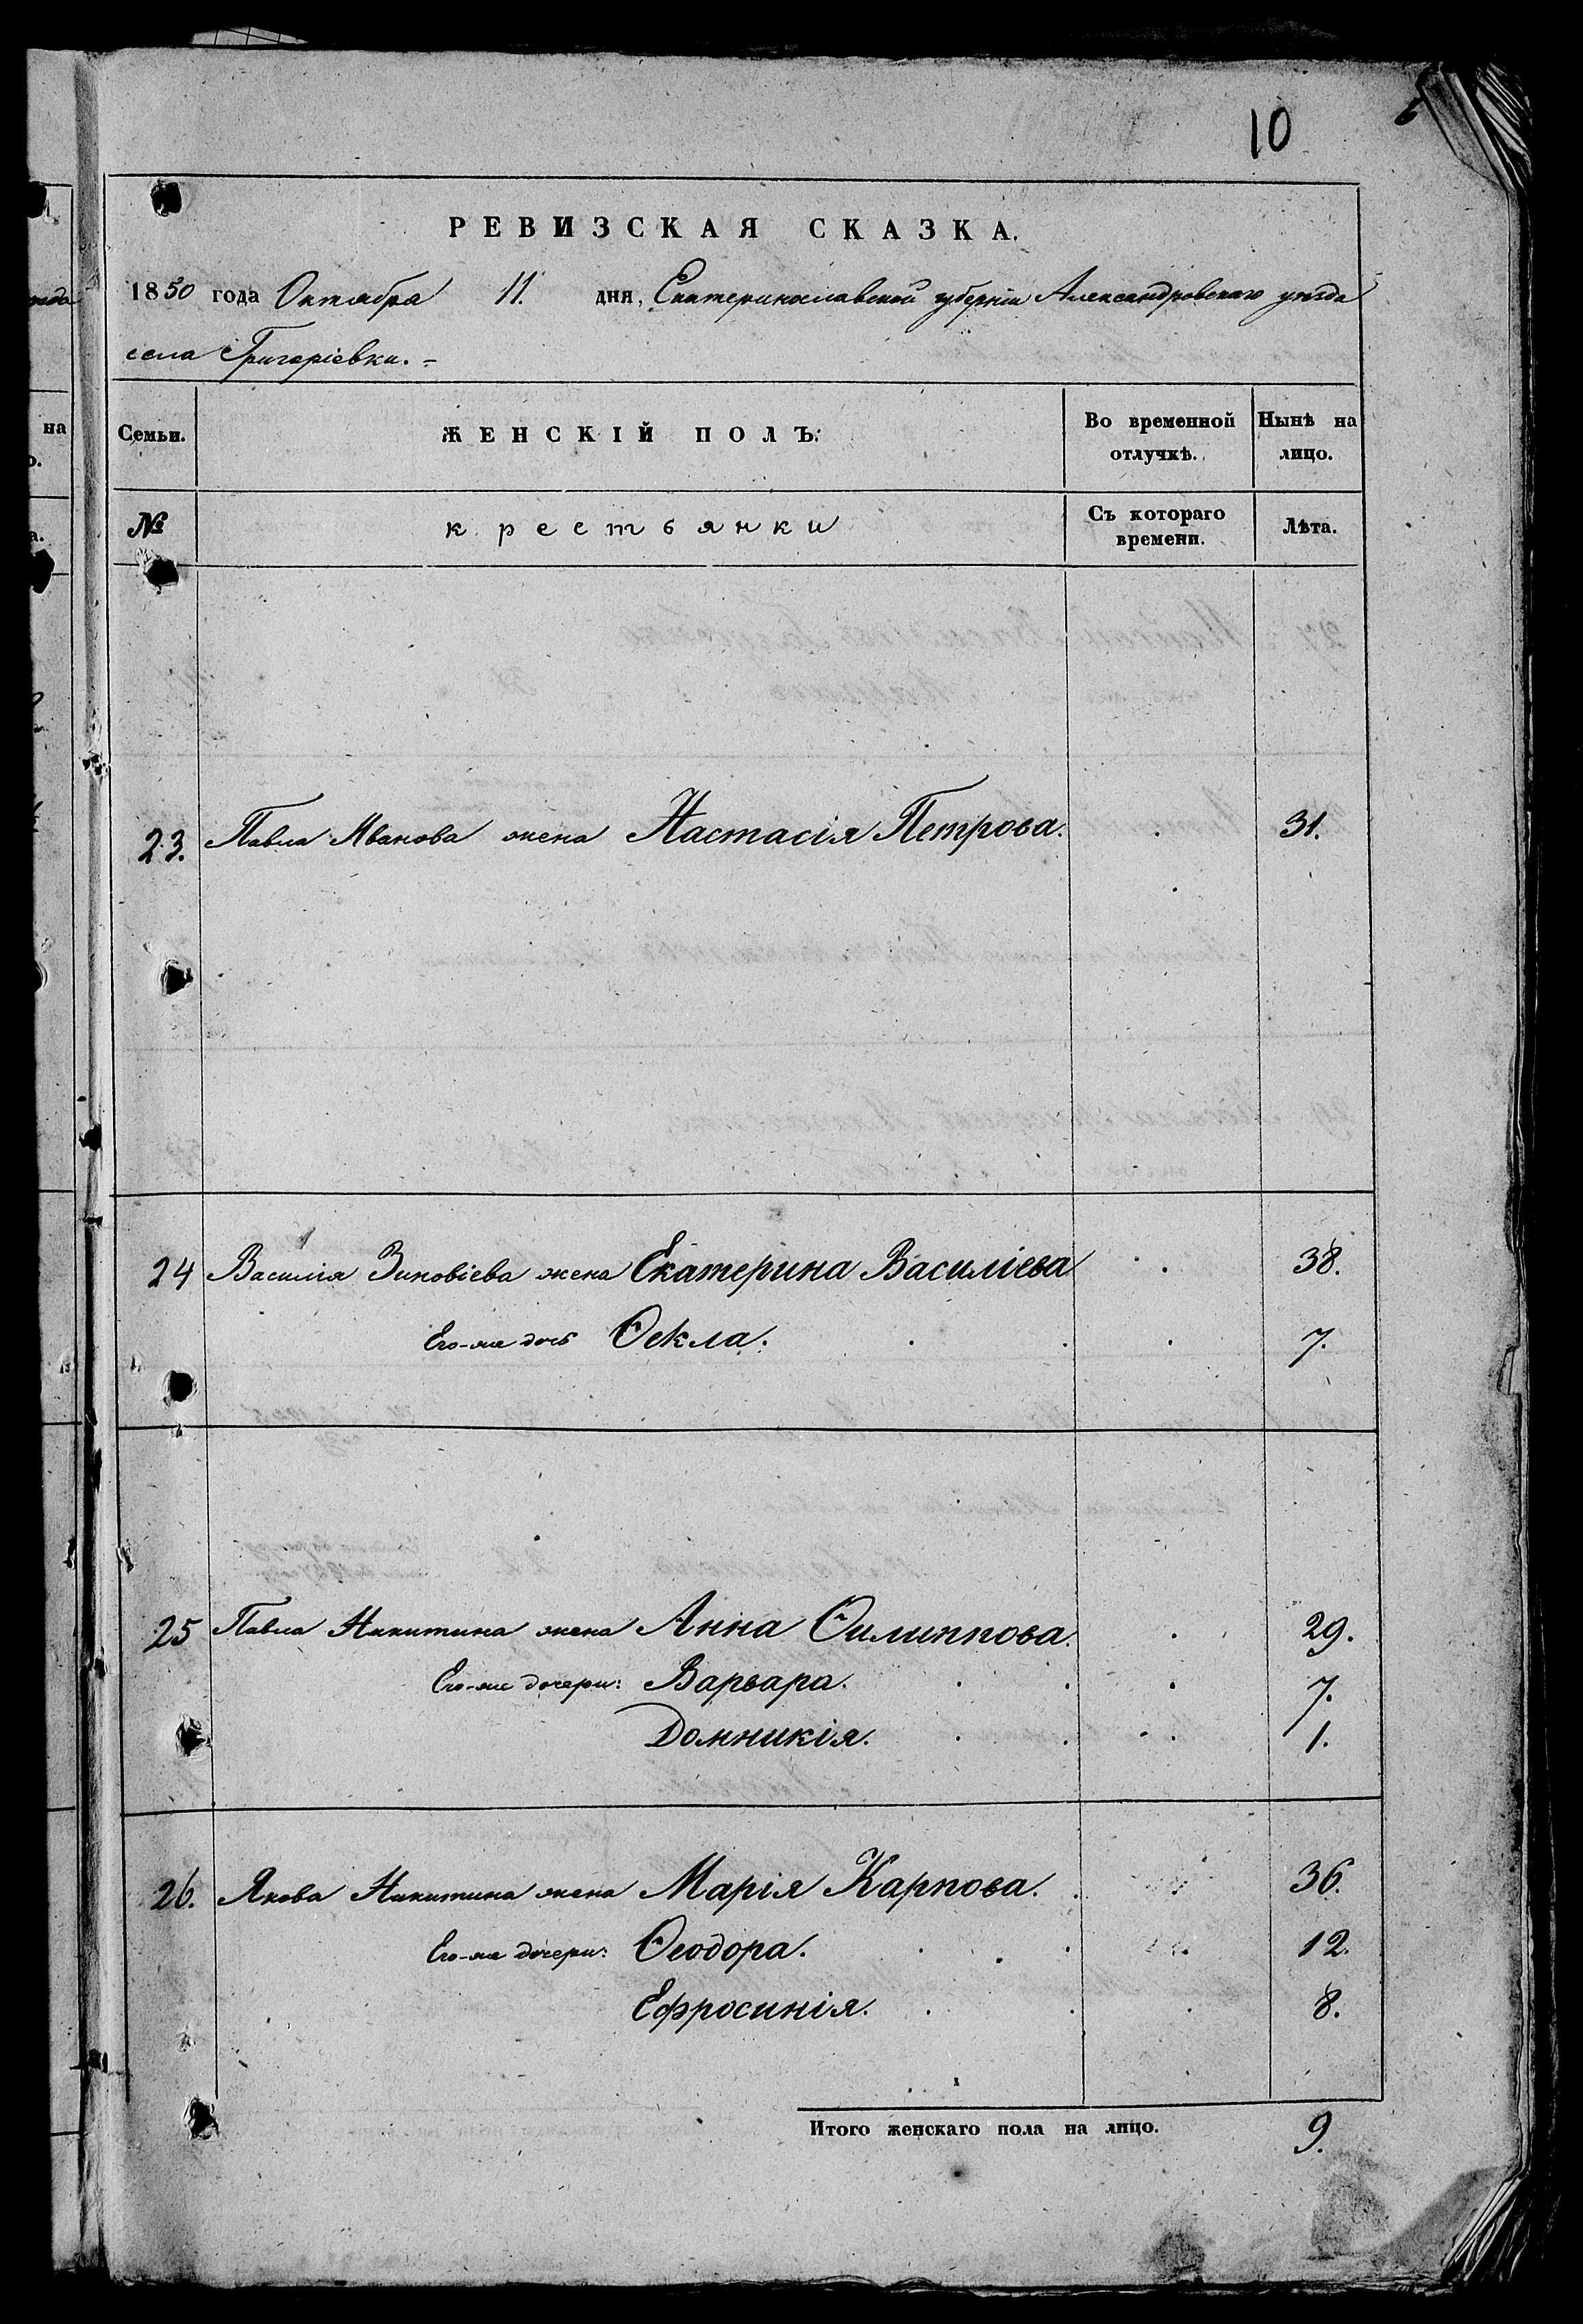 10
РЕВИЗСКАЯ СКАЗКА.
1850 года Октября 11. дня, Екатеринославской губерніи Александровскаго уѣзда
села Григоріевки. =
Семьи. ЖЕНСКІЙ ПОЛЪ. Во временной отлучкѣ. Нынѣ на лицо.
№ крестьянки Съ котораго времени. Лѣта.
23. Павла Иванова жена Настасія Петрова. 31.
24 Василія Зиновіева жена Екатерина Василіева 38.
Его-же дочь Ѳекла. 7.
25 Павла Никитина жена Анна Ѳилиппова. 29.
Его-же дочери: Варвара. 7.
Домникія. 1.
26. Якова Никитина жена Марія Карпова. 36.
Его-же дочери: Ѳеодора. 12.
Ефросинія. 8.
Итого женскаго пола на лицо. 9.